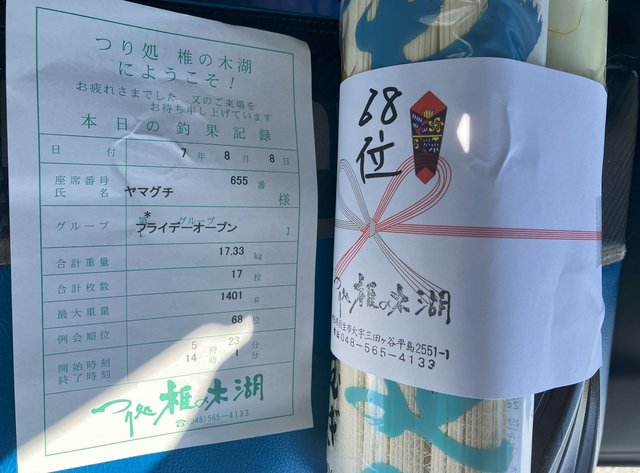 つり処 椎の木湖
にようこそ!
お疲れさまでした 又のご来場を
お待ち申し上げています
本日の釣果記録
日 付 7年 8月 8日
座席番号 655番
氏 名 ヤマグチ 様
グループ フライデーオープン
合計重量 17.33 kg
合計枚数 17 枚
最大重量 1401 g
例会順位 68 位
開始時刻 5時 23分
終了時刻 14時 1分
つり処 椎の木湖
☎(048)565-4133
68
位
つり処 椎の木湖
生市大字三田ヶ谷平島2551-1
048-565-4133